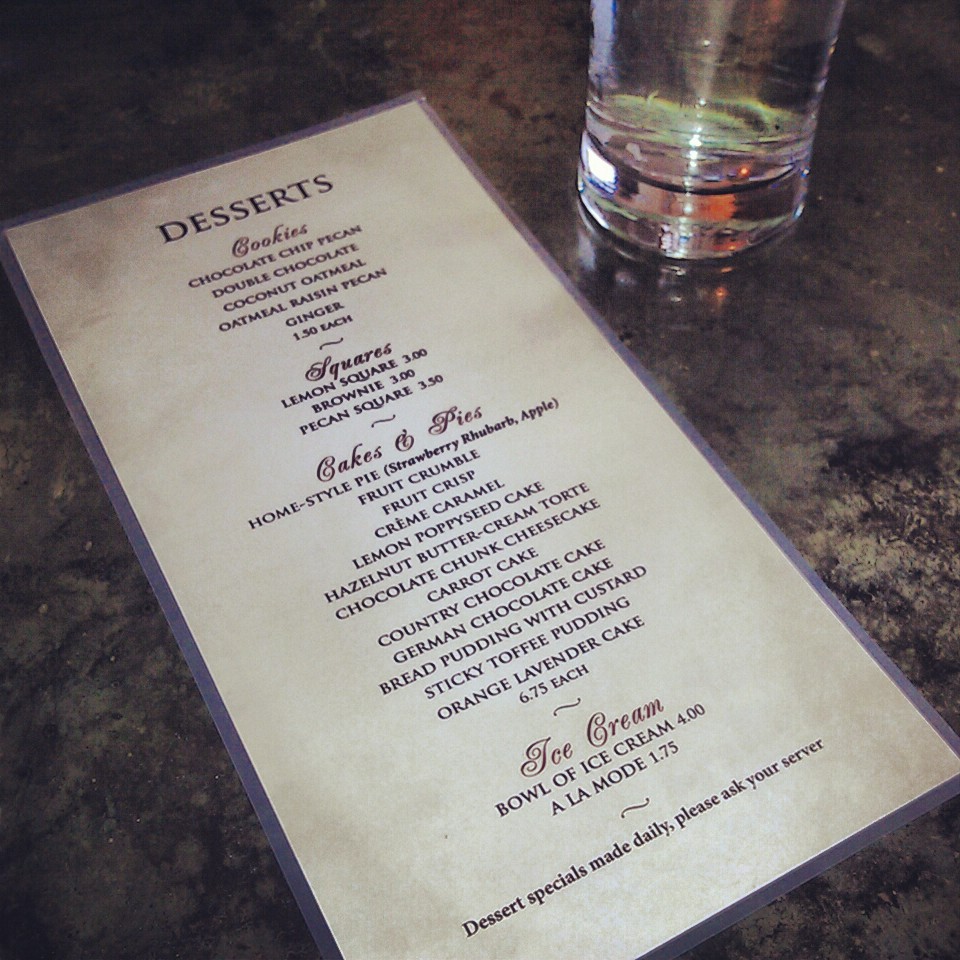 DESSERTS
Cookies
CHOCOLATE CHIP PECAN
DOUBLE CHOCOLATE
COCONUT OATMEAL
OATMEAL RAISIN PECAN
GINGER
1.50 EACH
~
Squares
LEMON SQUARE 3.00
BROWNIE 3.00
PECAN SQUARE 3.50
~
Cakes & Pies
HOME-STYLE PIE (Strawberry Rhubarb, Apple)
FRUIT CRUMBLE
FRUIT CRISP
CRÈME CARAMEL
LEMON POPPYSEED CAKE
HAZELNUT BUTTER-CREAM TORTE
CHOCOLATE CHUNK CHEESECAKE
CARROT CAKE
COUNTRY CHOCOLATE CAKE
GERMAN CHOCOLATE CAKE
BREAD PUDDING WITH CUSTARD
STICKY TOFFEE PUDDING
ORANGE LAVENDER CAKE
6.75 EACH
~
Ice Cream
BOWL OF ICE CREAM 4.00
A LA MODE 1.75
~
Dessert specials made daily, please ask your server